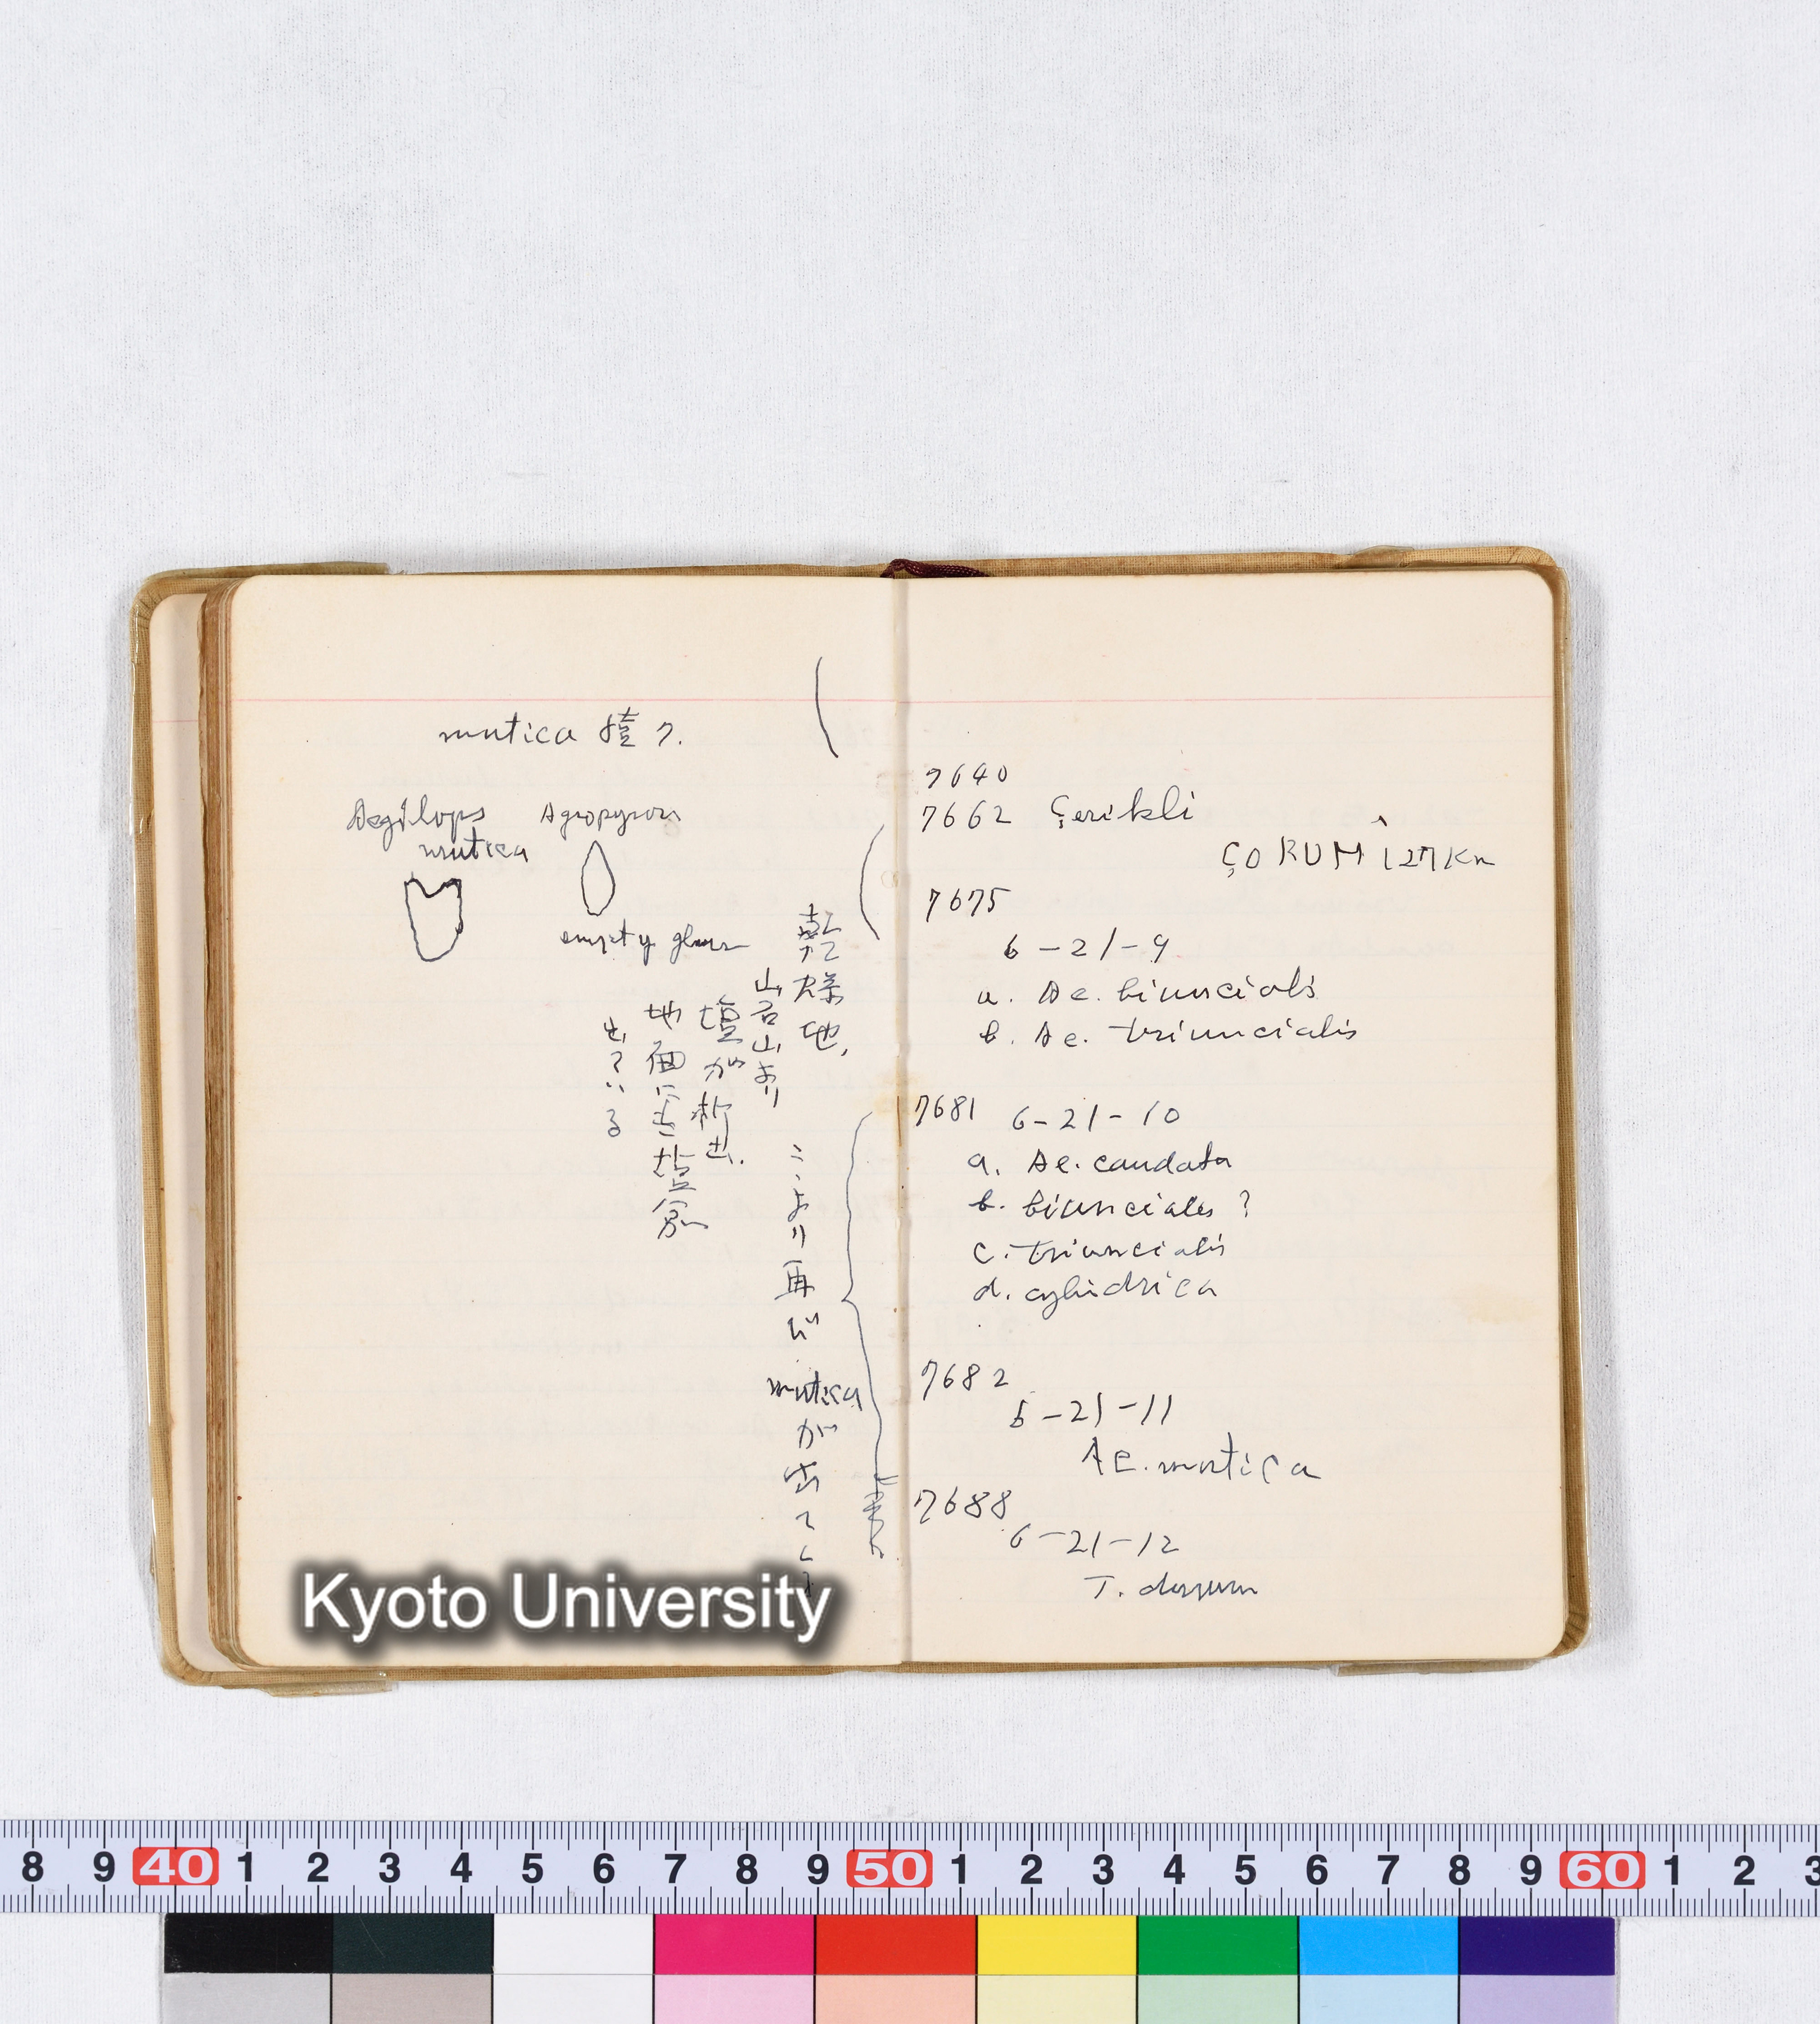 mutica 続ク.
Aegilops
mutica
Agropyron
empty glume
乾燥地,
岩山より
塩が析出.
地面に
塩分
出ている
ここより再び mutica が出てくる
7640
7662 Çerikli
ÇORUM 127Km
7675
6-21-9
a. Ae. biuncialis
b. Ae. triuncialis
7681 6-21-10
a. Ae. caudata
b. biuncialis ?
c. triuncialis
d. cylidrica
7682
6-21-11
Ae. mutica
7688
6-21-12
T. durum
Kyoto University
8 9 40 1 2 3 4 5 6 7 8 9 50 1 2 3 4 5 6 7 8 9 60 1 2 3